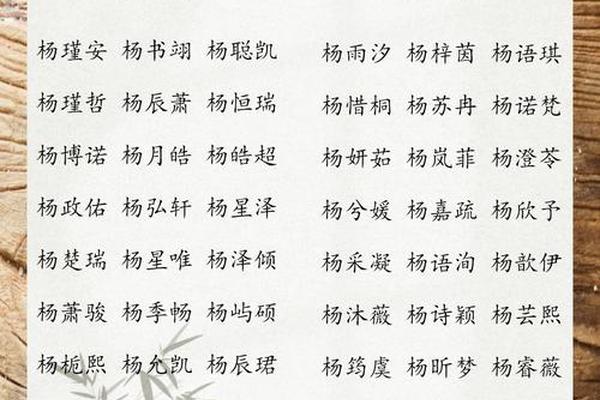 杨瑾安 杨书翊 杨聪凯
杨瑾哲 杨辰萧 杨恒瑞
杨博诺 杨月皓 杨皓超
杨政佑 杨弘轩 杨星泽
杨楚瑞 杨星唯 杨泽倾
杨萧骏 杨季畅 杨屿硕
杨栀熙 杨允凯 杨辰珺
杨雨汐 杨梓茵 杨语琪
杨惜桐 杨苏冉 杨诺梵
杨妍茹 杨岚菲 杨澄苓
杨兮媛 杨嘉疏 杨欣予
杨采凝 杨语洵 杨歆伊
杨沐薇 杨诗颖 杨芸熙
杨筠虞 杨昕梦 杨睿薇